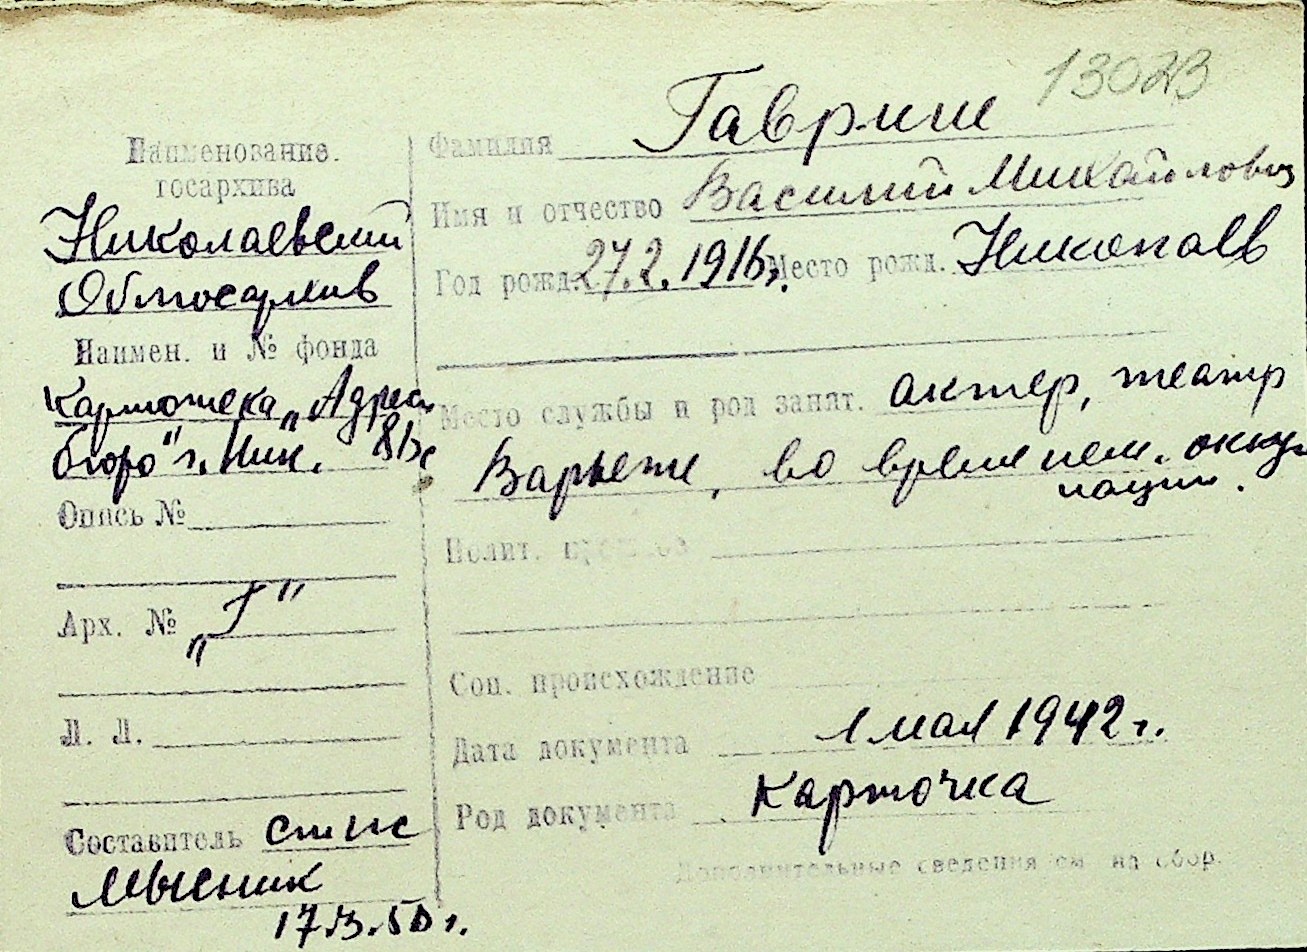 13023
Наименование.
госархива
Николаевский
Облгосархив
Наимен. и № фонда
Картотека „Адресн
бюро" г. Ник.
Опись №
Арх. № „Г"
Л. Л.
Составитель
Мысник
17.3.50 г.
Фамилия
Имя и отчество Василий Михайлович
Год рожд. 27.2.1916г. Место рожд. Николаев
Место службы и род занят. актер, театр
Варьете, во время нем. окку-
пации.
Полит.
Соц. происхождение
Дата документа 1 мая 1942 г.
Род документа Карточка
Дополнительные сведения см на обор.